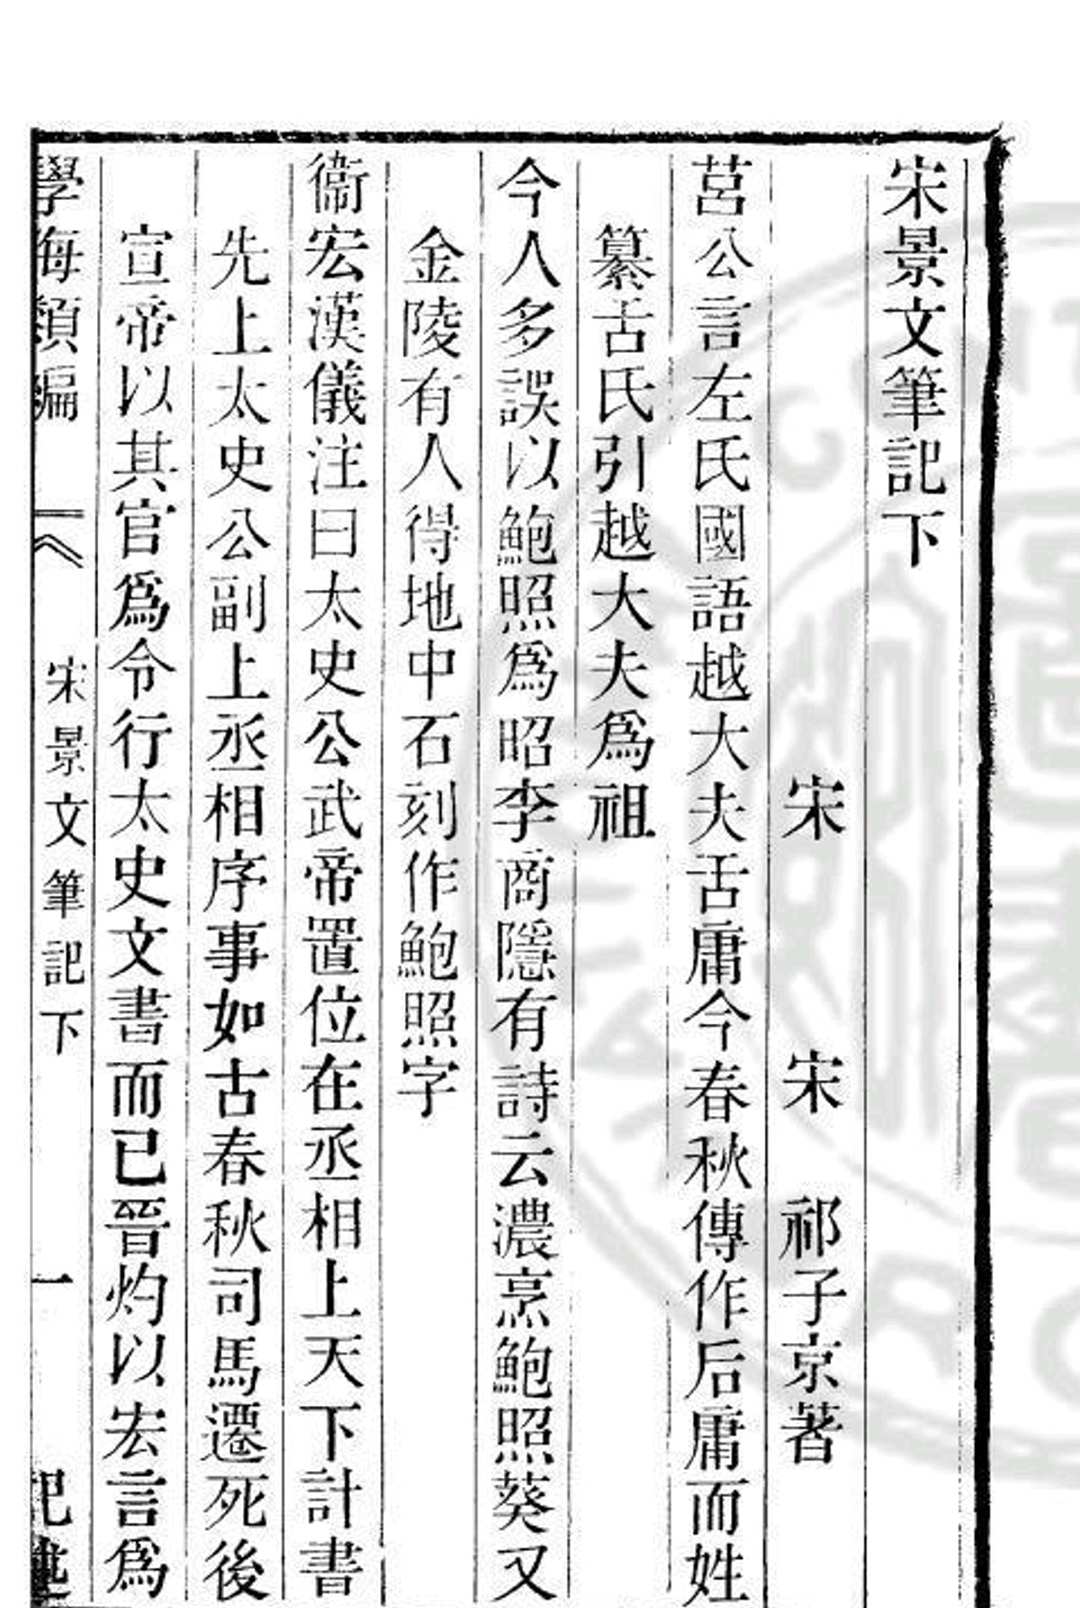 宋景文筆記下
宋　宋　祁子京著
莒公言左氏國語越大夫舌庸今春秋傳作后庸而姓
纂舌氏引越大夫爲祖
今人多誤以鮑照爲昭李商隱有詩云濃烹鮑照葵又
金陵有人得地中石刻作鮑照字
衞宏漢儀注曰太史公武帝置位在丞相上天下計書
先上太史公副上丞相序事如古春秋司馬遷死後
宣帝以其官爲令行太史文書而已晉灼以宏言爲
學海類編　宋景文筆記下　一　記述